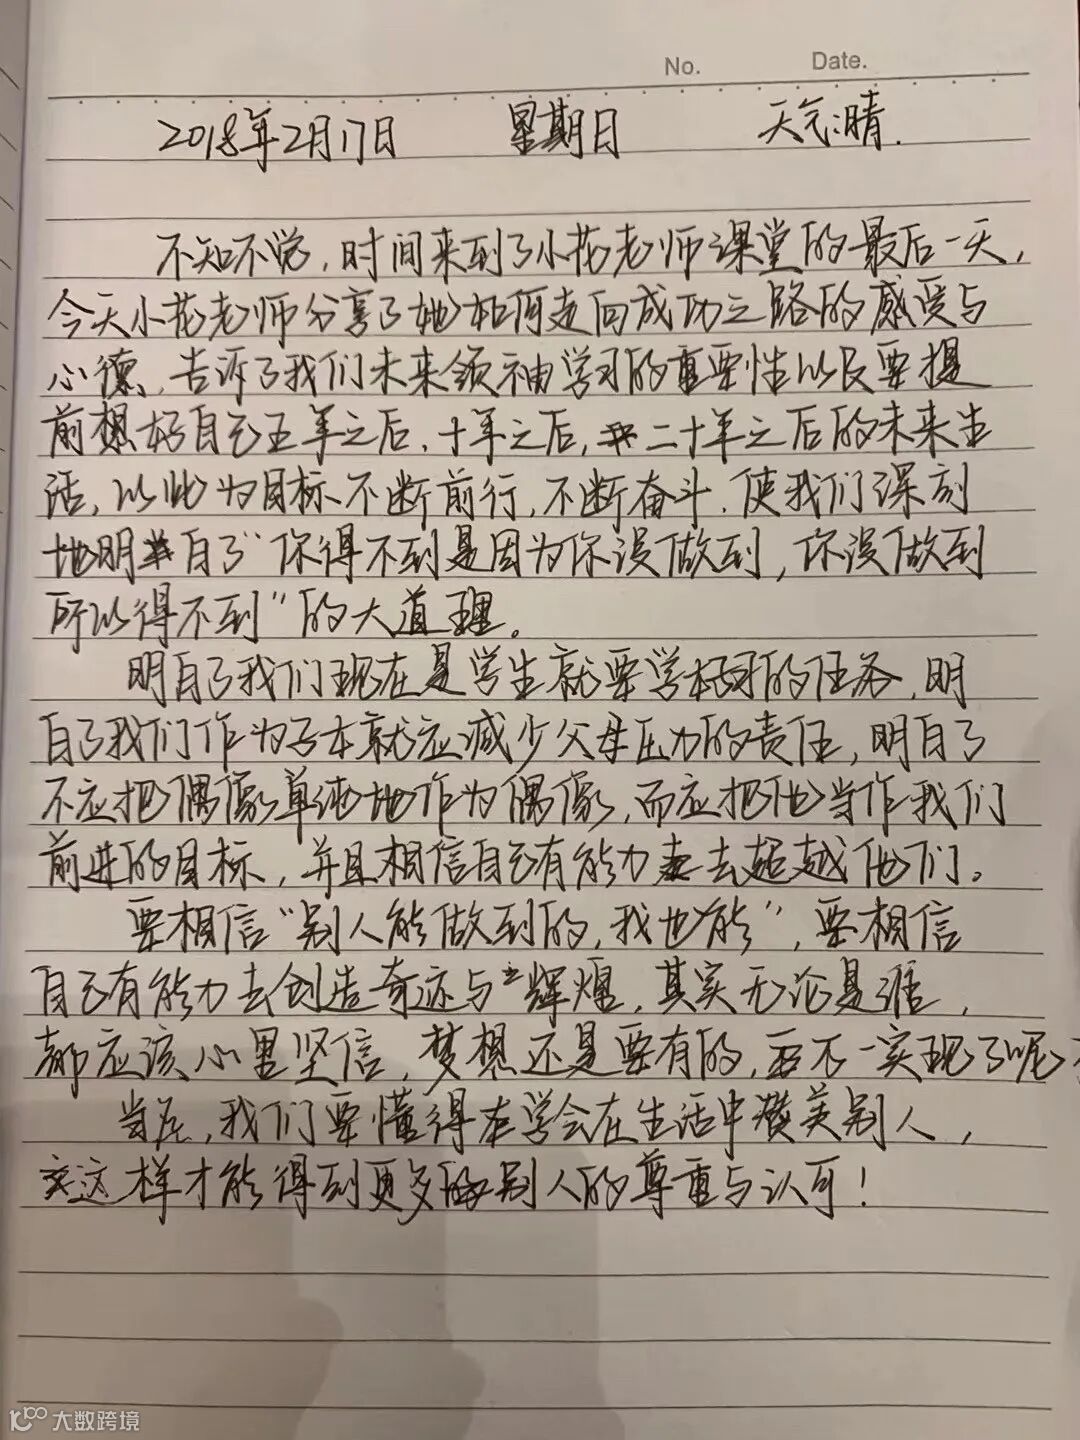 No. Date.
2018年2月17日 星期日 天气:晴.
不知不觉,时间来到了小花老师课堂的最后一天,
今天小花老师分享了她如何走向成功之路的感受与
心德,告诉了我们未来领袖学习的重要性以及要提
前想好自己五年之后,十年之后,二十年之后的未来生
活,以此为目标不断前行,不断奋斗,使我们深刻
地明白了“你得不到是因为你没做到,你没做到
所以得不到”的大道理。
明白了我们现在是学生就要学好习的任务,明
白了我们作为子女就应减少父母压力的责任,明白了
不应把偶像单纯地作为偶像,而应把他当作我们
前进的目标,并且相信自己有能力去超越他们。
要相信“别人能做到的,我也能”,要相信
自己有能力去创造奇迹与辉煌,其实无论是谁,
都应该心里坚信,梦想还是要有的,万一实现了呢
当然,我们要懂得在学会在生活中赞美别人,
这样才能得到更多的别人的尊重与认可!
大数跨境